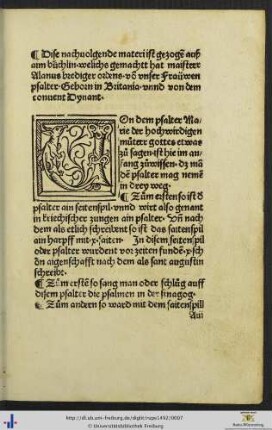 ¶ Dise nachuolgende materi ist gezogē auß
aim büchlin welichs gemacht hat maister
Alanus brediger ordens von vnser Frauwen
psalter Geborn in Britania vnnd von dem
conuent Dynant.
Von dem psalter Ma
rie der hochwirdigen
mûterr gottes etwaz
zů sagen ist hie im an
fang zůwissen dz mā
dē psalter mag nemē
in drey weg.
¶ Zům ersten so ist ď
psalter ain seitenspil vnnd wirt also genant
in kriechischer zungen ain psalter. Vñ nach
dem als etlich schreibent so ist das saitenspil
ain harpff mit x saiten. In disem seitenspil
oder psalter wurdent vor zeiten fundē x schō
aigenschafft nach dem als sant augustin
schreibt.
¶ Zům erstē so sang man oder schlůg auff
disem psalter die psalmen in der sinagog
¶ Zům andren so ward mit dem saitenspil
http://dl.ub.uni-freiburg.de/diglit/rosp1492/0007
© Universitätsbibliothek Freiburg